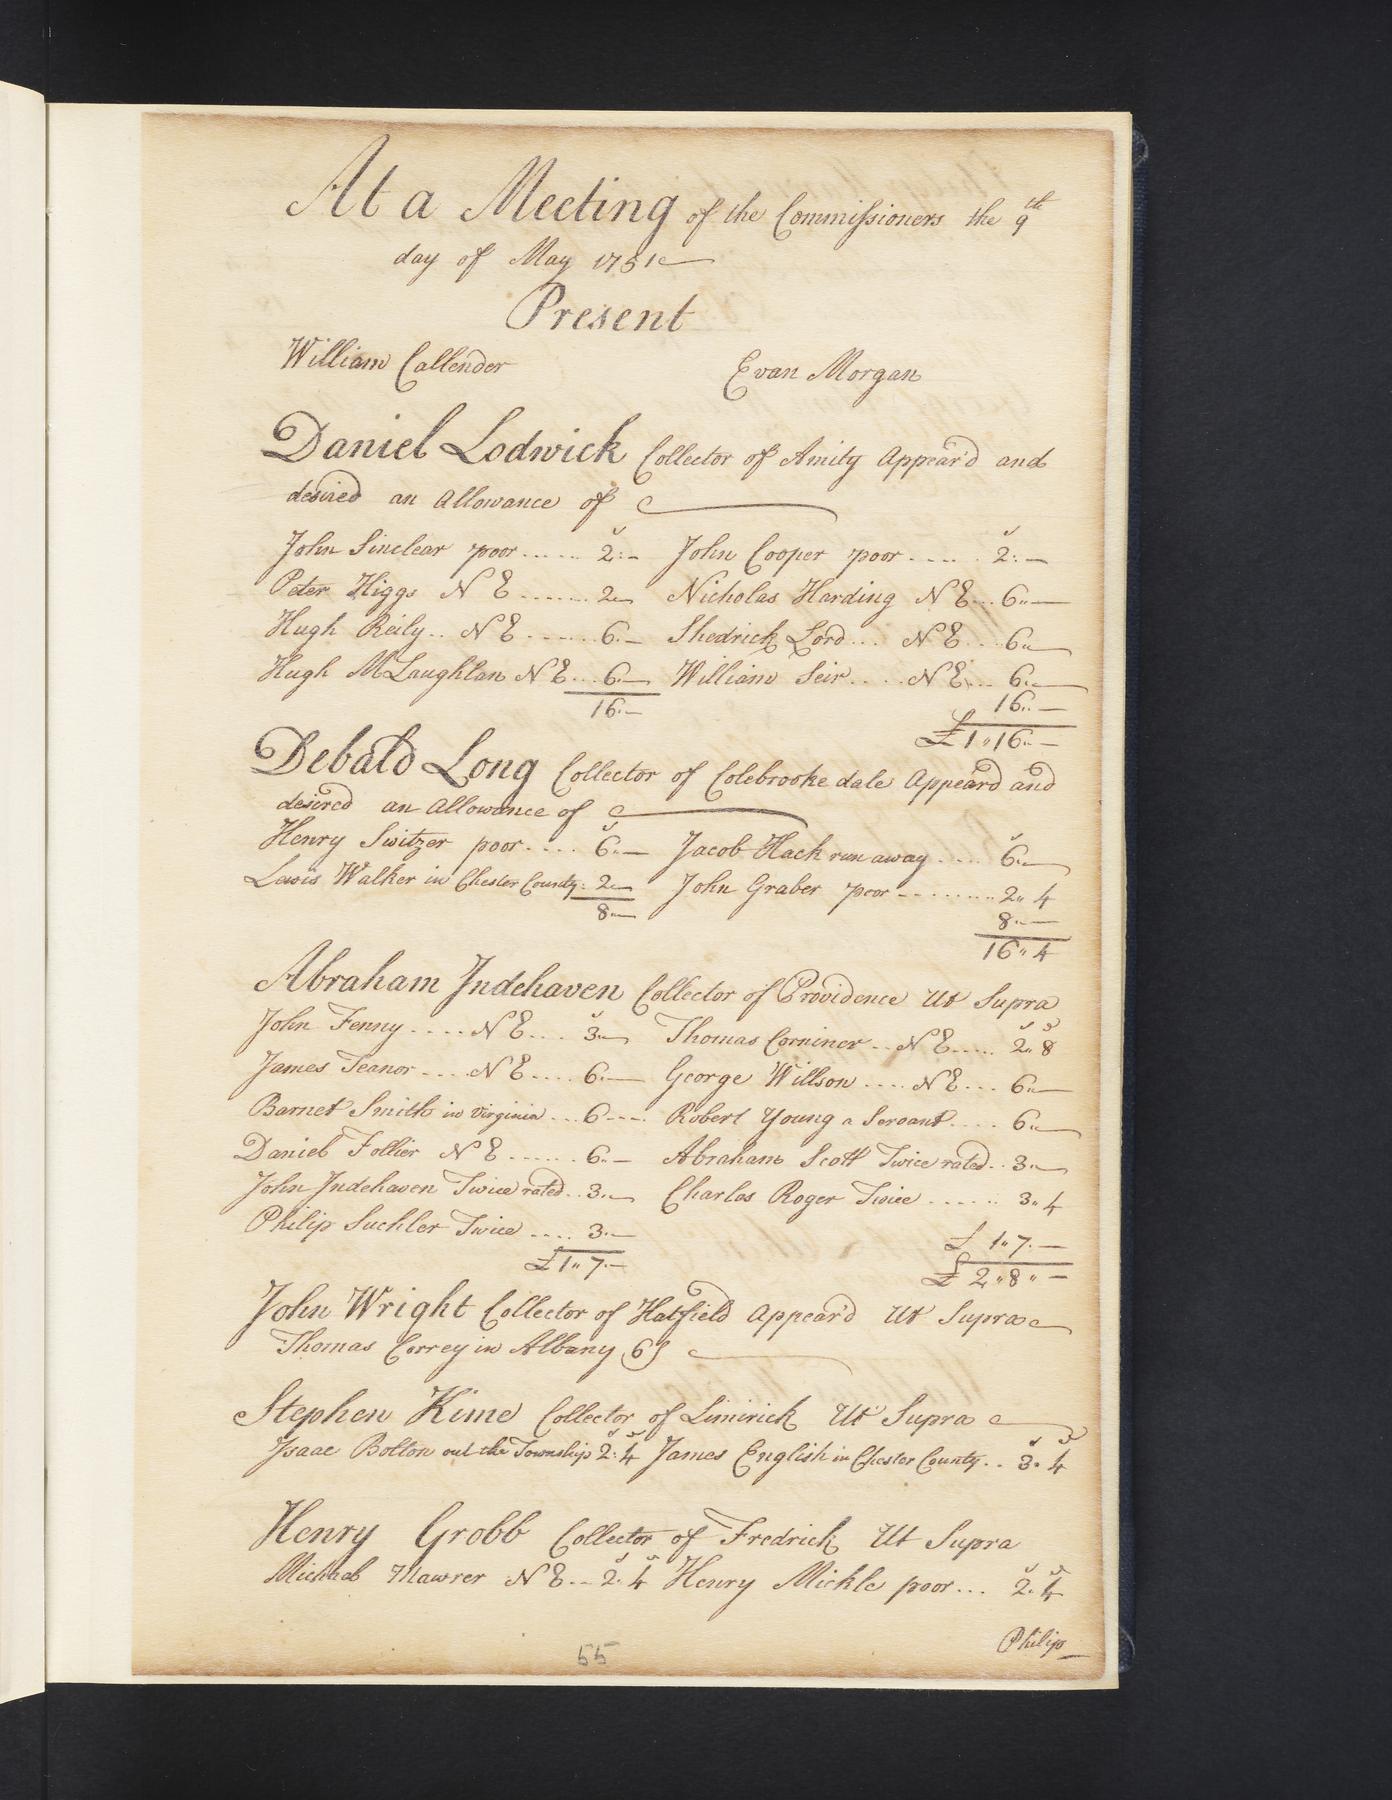 At a Meeting of the Commissioners the 9th
day of May 1751
Present
William Callender Evan Morgan
Daniel Lodwick Collector of Amity Appear'd and
desired an Allowance of
John Sinclear poor ...... 2s:- John Cooper poor ..... 2s:-
Peter Higgs N E ....... 2- Nicholas Harding N E... 6"-
Hugh Reily.. N E ...... 6.- Shedrick Lord... N E... 6"-
Hugh McLaughlan N E... 6"- William Seir..... N E... 6"-
16.- 16"-
£1"16"-
Debald Long Collector of Colebrooke dale Appeard and
desired an Allowance of
Henry Switzer poor.... 6s"- Jacob Hach run away .... 6s"-
Lewis Walker in Chester County: 2- John Graber poor ........ 2"4
8"- 8"-
16"4
Abraham Indehaven Collector of Providence Ut Supra
John Fenny .... N E... 3s"- Thomas Corniner.. N E..... 2s"8d
James Teanor .... N E.... 6"- George Willson .... N E... 6"-
Barnet Smith in virginia ... 6---- Robert Young a Servant.... 6"-
Daniel Follier N E ...... 6"- Abraham Scott Twice rated.. 3"-
John Indehaven Twice rated.. 3"- Charles Roger Twice ...... 3"4
Philip Suchler Twice .... 3"- £ 1"7.-
£1"7.- £ 2"8"-
John Wright Collector of Hatfield Appear'd Ut Supra
Thomas Correy in Albany 6s
Stephen Kime Collector of Limirick Ut Supra
Isaac Bolton out the Township 2s:4d James English in Chester County.. 3s"4d
Henry Grobb Collector of Fredrick Ut Supra
Michael Mawrer N E... 2s.4d Henry Mickle poor... 2s.4d
Philip
55